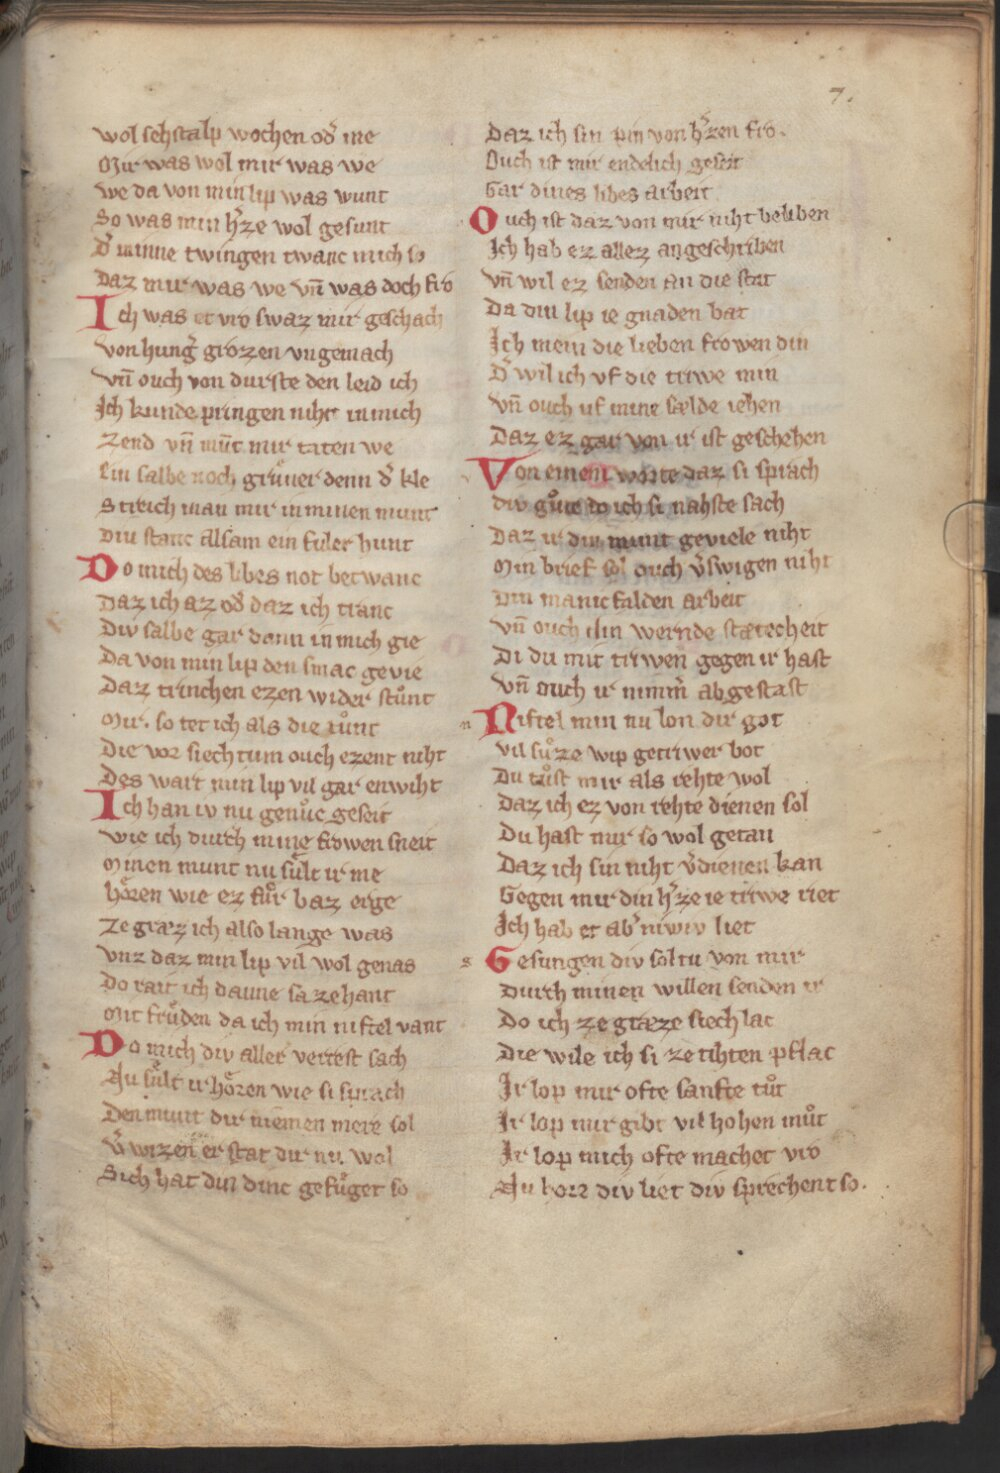 7.
wol sehstalp wochen od̄ me
Mir was wol mir was we
we da von min lip was wunt
So was min h̄ze wol gesunt
D̄ minne twingen twanc mich so
Daz mir was we vn̄ was doch fro
Ich was et vro swaz mir geschach
von hunḡ grozen vngemach
vn̄ ouch von durste den leid ich
Ich kunde pringen niht in mich
Zend vn̄ mūt mir taten we
Ein salbe noch grůner denn d̄ kle
Streich man mir in minen munt
Diu stanc alsam ein fuler hunt
Do mich des libes not betwanc
Daz ich az od̄ daz ich tranc
Div salbe gar dann in mich gie
Da von min lip den smac gevie
Daz trinchen ezen wider stůnt
Mir. so tet ich als die tůnt
Die vor siechtum ouch ezent niht
Des wart min lip vil gar enwiht
Ich han iv nu genůc geseit
wie ich durch mine frowen sneit
Minen munt nu sůlt ir me
hôren wie ez fůr baz erge
Ze græz ich also lange was
vnz daz min lip vil wol genas
Do rait ich danne sa zehant
Mit frůden da ich min niftel vant
Do mich div aller verrest sach
Nu sůlt ir hôren wie si sprach
Den munt dir niemen mere sol
v̄wizen er stat dir nu wol
Sich hat din dinc gefůget so
Daz ich sin pin von h̄zen fro.
Ouch ist mir endelich geseit
Gar dines libes arbeit
Ouch ist daz von mir niht beliben
Ich hab ez allez angeschriben
vn̄ wil ez senden an die stat
Da diu lip ie gnaden bat
Ich mein die lieben frowen din
D̄ wil ich vf die triwe min
vn̄ ouch uf mine sælde iehen
Daz ez gar von ir ist geschehen
Von einem worte daz si sprach
div gůte do ich si nahste sach
Daz ir din munt geviele niht
Min brief sol ouch v̄swigen niht
Din manicfalden arbeit
vn̄ ouch din wernde stætecheit
Di du mit triwen gegen ir hast
vn̄ ouch ir nimm̄ abgestast
n Niftel min nu lon dir got
vil sůze wip getriwer bot
Du tůst mir als rehte wol
Daz ich ez von rehte dienen sol
Du hast mir so wol getan
Daz ich sin niht v̄dienen kan
Gegen mir din h̄ze ie triwe riet
Ich hab et ab̄ niwiv liet
s Gesungen div soltu von mir
Durch minen willen senden ir
Do ich ze græze siech lac
Die wile ich si ze tihten pflac
Ir lop mir ofte sanfte tůt
Ir lop mir gibt vil hohen můt
Ir lop mich ofte machet vro
Nu horr div liet div sprechent so.